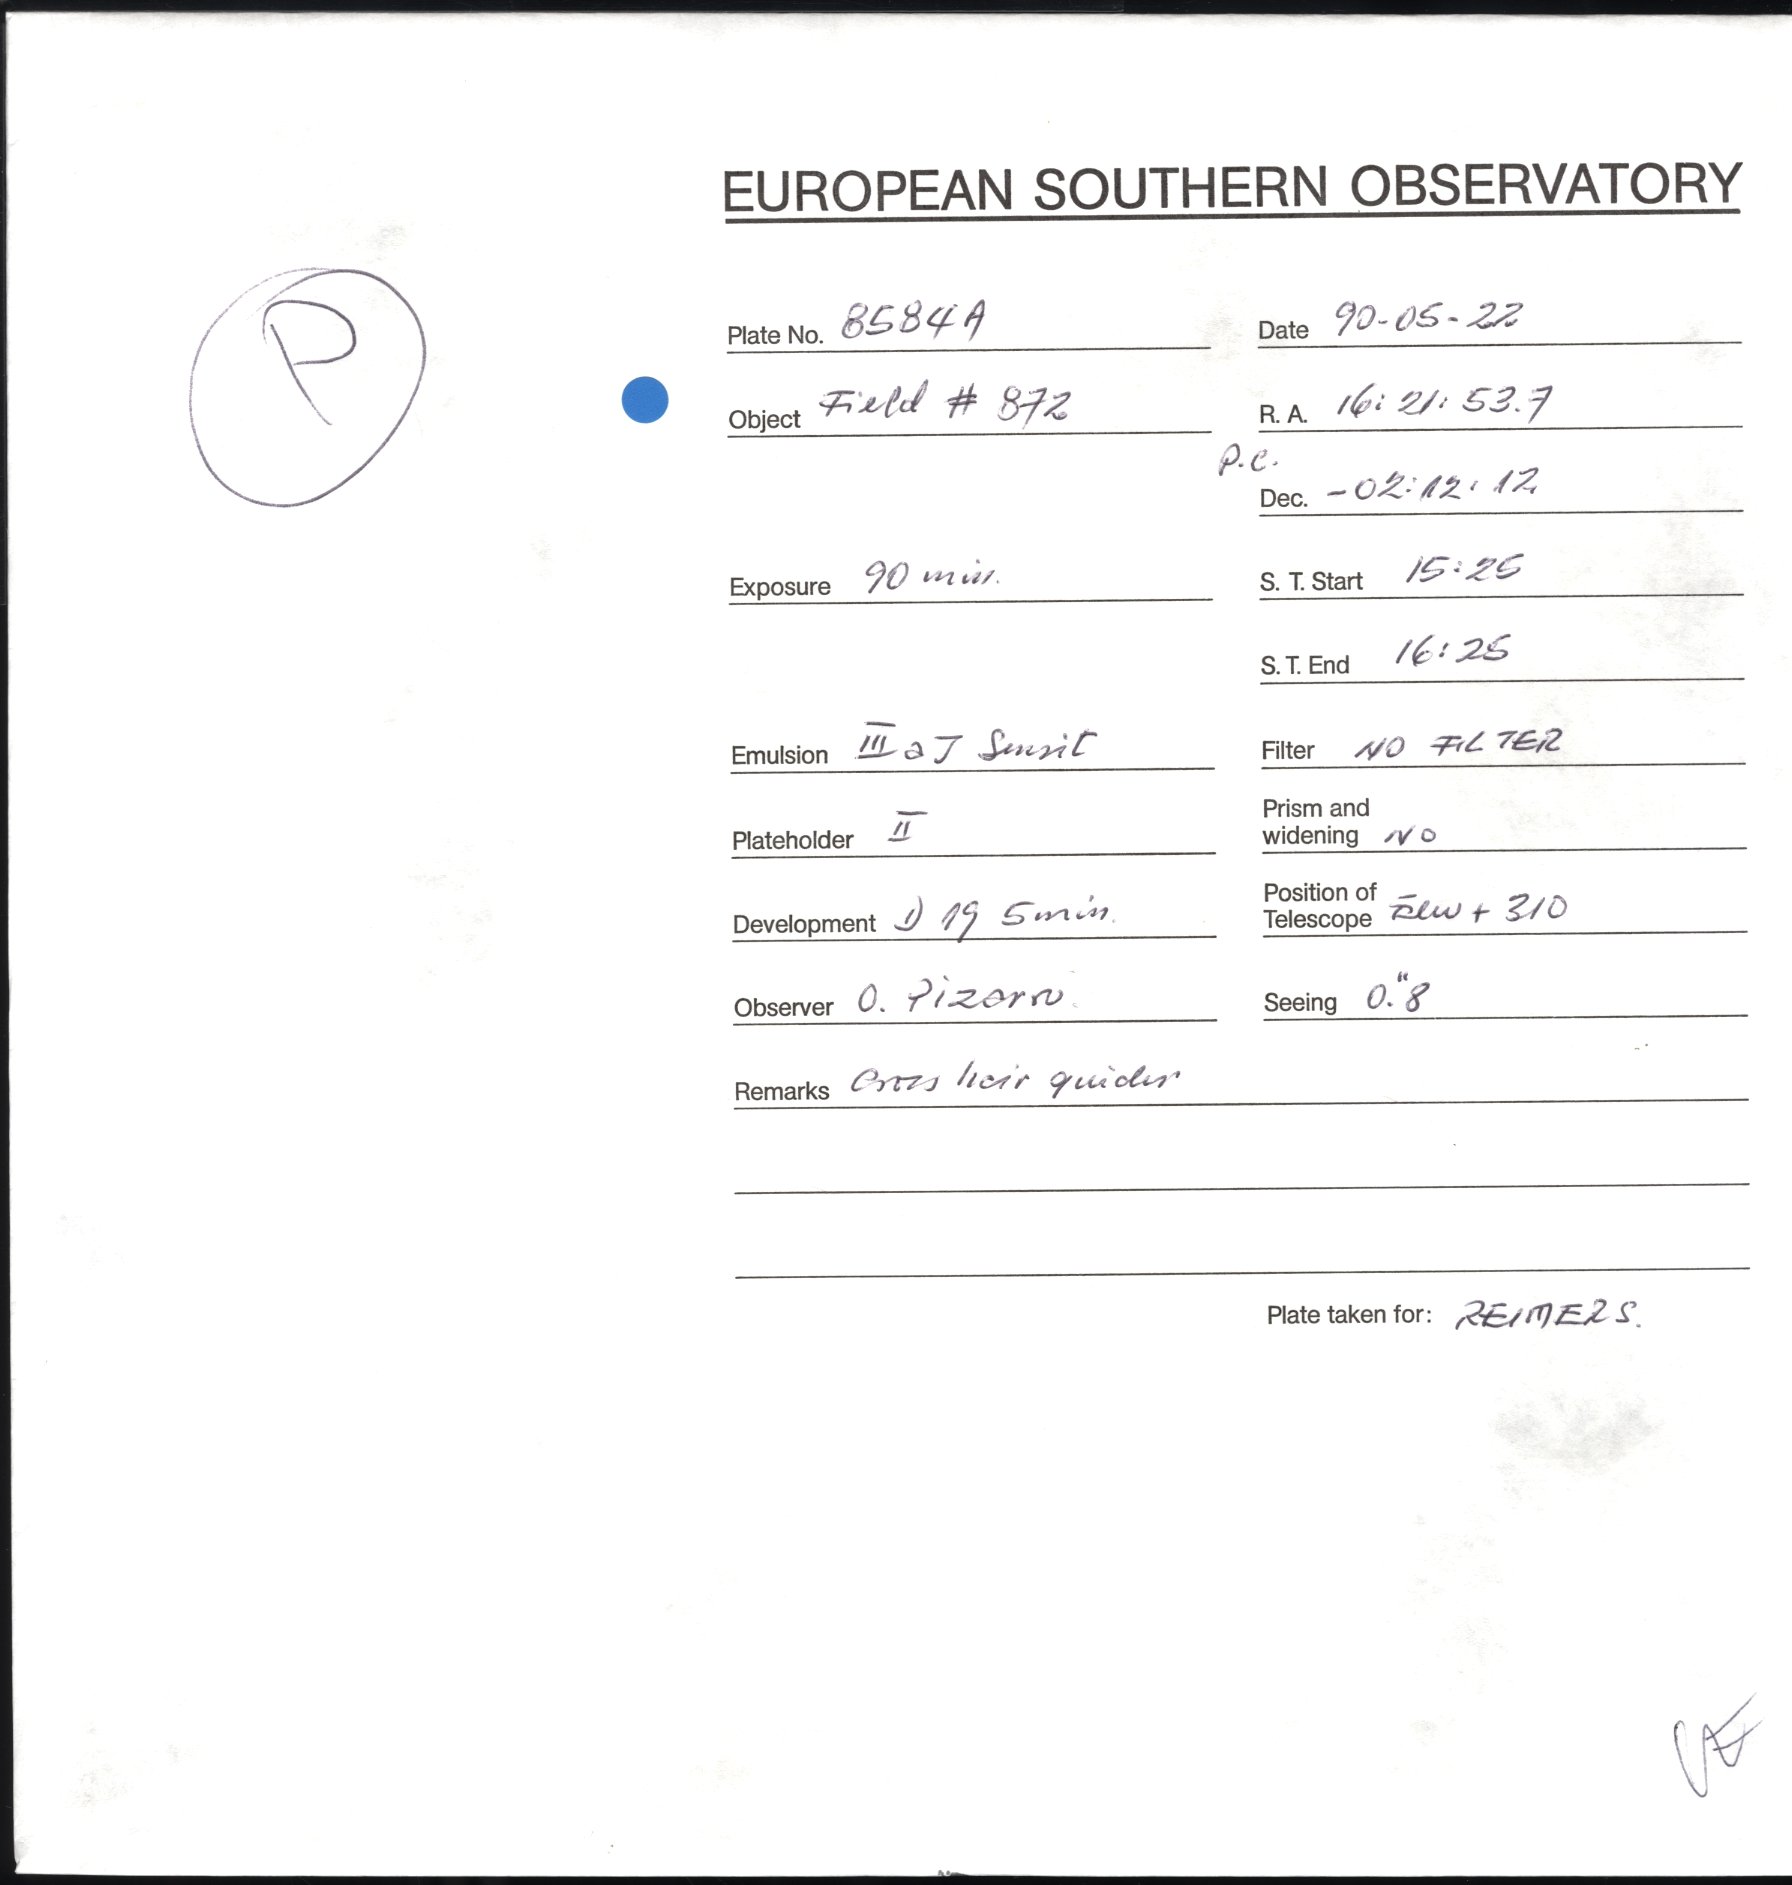 EUROPEAN SOUTHERN OBSERVATORY
P
Plate No. 8584A Date 90-05-22
Object Field # 872 R. A. 16: 21: 53.7
P.C.
Dec. -02:12:12
Exposure 90 min. S. T. Start 15:25
S. T. End 16:25
Emulsion III a J Sensit Filter NO FILTER
Plateholder II Prism and
widening NO
Development D 19 5 min. Position of
Telescope + 310
Observer O. Pizarro. Seeing 0."8
Remarks Cross hair guider
Plate taken for: REIMERS.